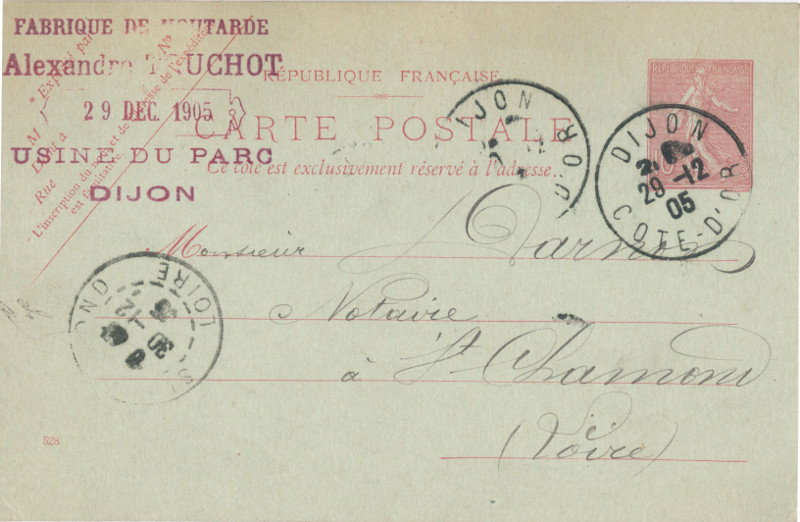 FABRIQUE DE MOUTARDE
Alexandre UCHOT
29 DEC. 1905
USINE DU PARC
DIJON
Exp par
No
M
à
Rue
L'inscription du et de l'adresse de l'expéditeur
est facultative.
RÉPUBLIQUE FRANÇAISE
CARTE POSTALE
Ce côté est exclusivement réservé à l'adresse.
RÉPUBLIQUE FRANÇAISE
IJON
D'OR
DIJON
29 -12
05
COTE-D'OR
Monsieur
Notaire
à St Chamond
(Loire)
OND
LOIRE
30 -12
05
528